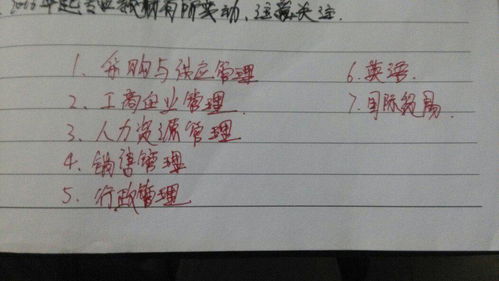 年起专业说明有所变动,注意关注.
1、采购与供应管理
2、工商企业管理
3、人力资源管理
4、销售管理
5、行政管理
6、英语
7、国际贸易